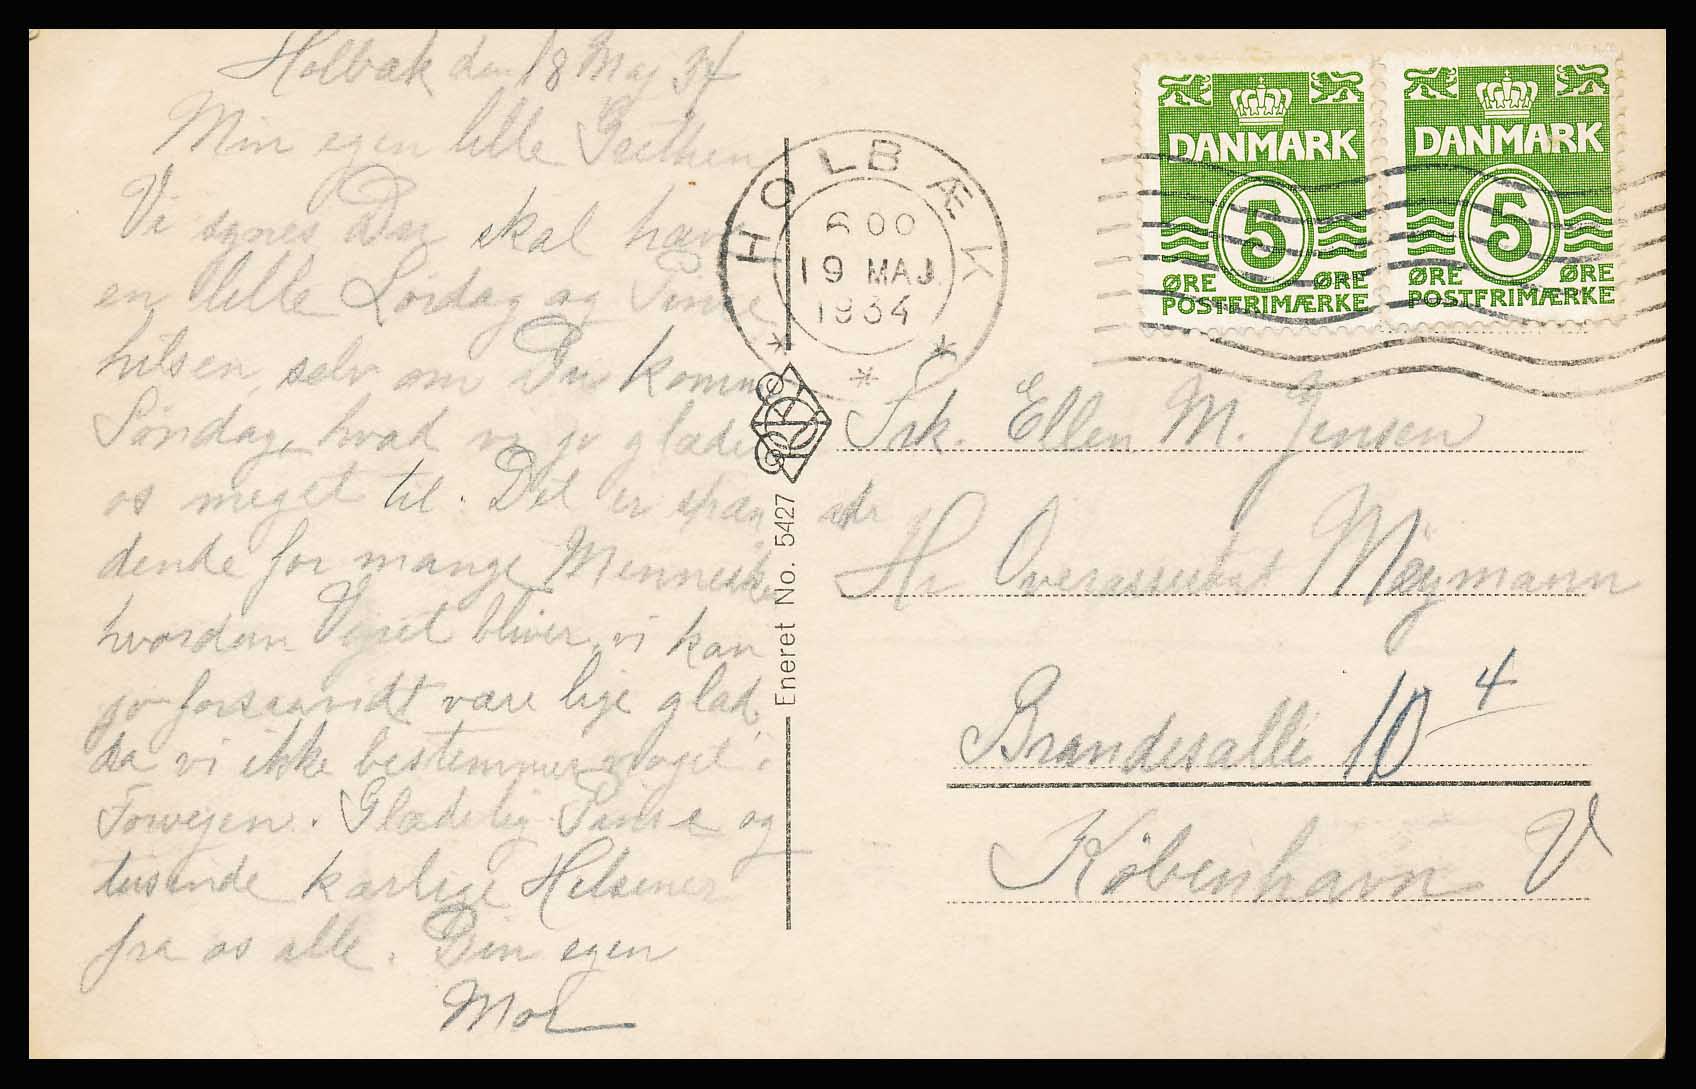 Holbæk den 18 Maj 34
Min egen lille Grethen
Vi synes Du skal have
en lille Lørdag og Pinse
hilsen, selv om Du kommer
Søndag, hvad vi jo glæder
os meget til. Det er spæn
dende for mange Mennesker
hvordan Vejret bliver, vi kan
jo forsaavidt være lige glad,
da vi ikke bestemmer noget i
Forvejen. Glædelig Pinse og
tusinde kærlige Hilsener
fra os alle. Din egen
Mor
HOLBÆK
6 00
19 MAJ.
1934
Eneret No. 5427
DANMARK
5
ØRE ØRE
POSTFRIMÆRKE
DANMARK
5
ØRE ØRE
POSTFRIMÆRKE
Frk. Ellen M. Jensen
adr
Hr Overassistent Møymann
Brandesalle 10 4
København V